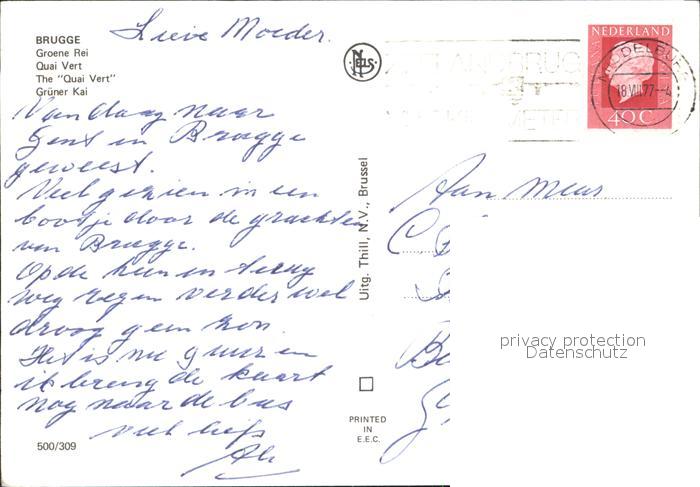 BRUGGE
Groene Rei
Quai Vert
The "Quai Vert"
Grüner Kai
Lieve Moeder.
Vandaag naar
Gent en Brugge
geweest.
Veel gezien in een
bootje door de grachten
van Brugge.
Op de heen en terug
weg regen verder wel
droog geen zon.
Het is nu 9 uur en
ik breng de kaart
nog naar de bus
veel liefs
500/309
NELS
Uitg. Thill, N.V., Brussel
PRINTED
IN
E.E.C.
NEDERLAND
40C
MIDDELBURG
18.VIII.77
Aan Mevr
privacy protection
Datenschutz